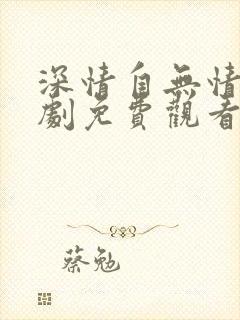 深情自無情
劇免費觀看
蔡勉